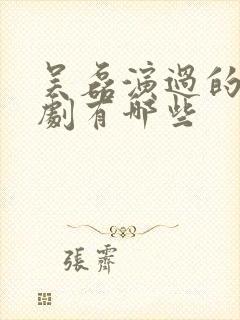 吴磊演過的
劇有哪些
張霽